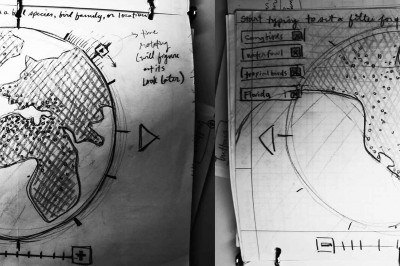 a bird species, bird family, or location
→ time
notches
(will figure
out its
look later)
+
Start typing to set a filter
Songbirds
waterfowl
tropical birds
Florida
-